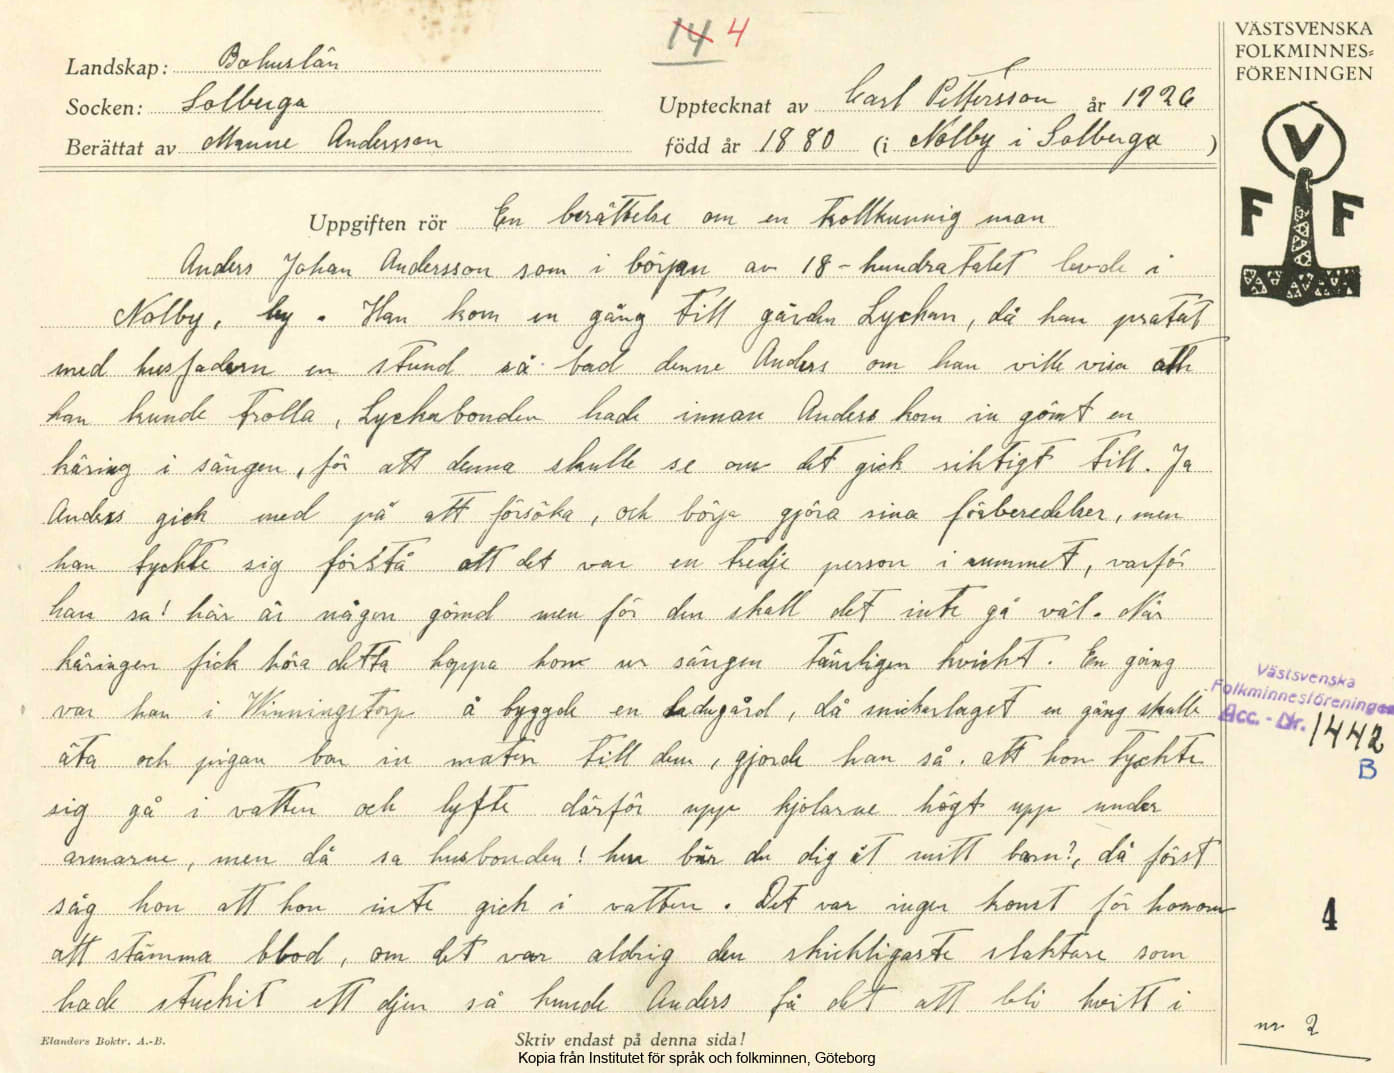 14 4
Landskap: Bohuslän
Socken: Solberga
Berättat av Manne Andersson
Upptecknat av Carl Pettersson år 1926
född år 1880 (i Nolby i Solberga )
Uppgiften rör En berättelse om en trollkunnig man
Anders Johan Andersson som i början av 18-hundratalet levde i
Nolby, by. Han kom en gång till gården Lyckan, då han pratat
med husfadern en stund så bad denne Anders om han ville visa att
han kunde trolla, Lyckebonden hade innan Anders kom in gömt en
käring i sängen, för att denna skulle se om det gick riktigt till. Ja
Anders gick med på att försöka, och börja gjöra sina förberedelser, men
han tyckte sig förstå att det var en tredje person i rummet, varför
han sa! här är någon gömd men för den skall det inte gå väl. När
käringen fick höra detta hoppa hon ur sängen tämligen kvickt. En gång
var han i Winningstorp å byggde en ladugård, då snickarlaget en gång skulle
äta och pigan bar in maten till dem, gjorde han så. att hon tyckte
sig gå i vatten och lyfte därför upp kjolarne högt upp under
armarne, men då sa husbonden! hur bär du dig åt mitt barn?, då först
såg hon att hon inte gick i vatten. Det var ingen konst för honom
att stämma blod, om det var aldrig den skickligaste slaktare som
hade stuckit ett djur så kunde Anders få det att bli hvitt i
Elanders Boktr. A.-B.
Skriv endast på denna sida!
Kopia från Institutet för språk och folkminnen, Göteborg
VÄSTSVENSKA
FOLKMINNES-
FÖRENINGEN
V
F F
Västsvenska
Folkminnesföreningen
Acc. - Nr. 1442
B
4
nr 2